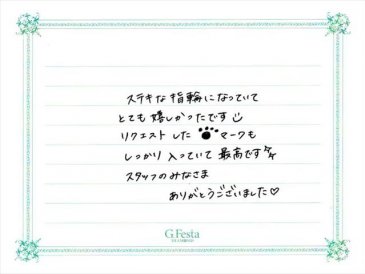 ステキな指輪になっていて
とても嬉しかったです
リクエストした 🐾マークも
しっかり入っていて最高です
スタッフのみなさま
ありがとうございました♡
G.Festa